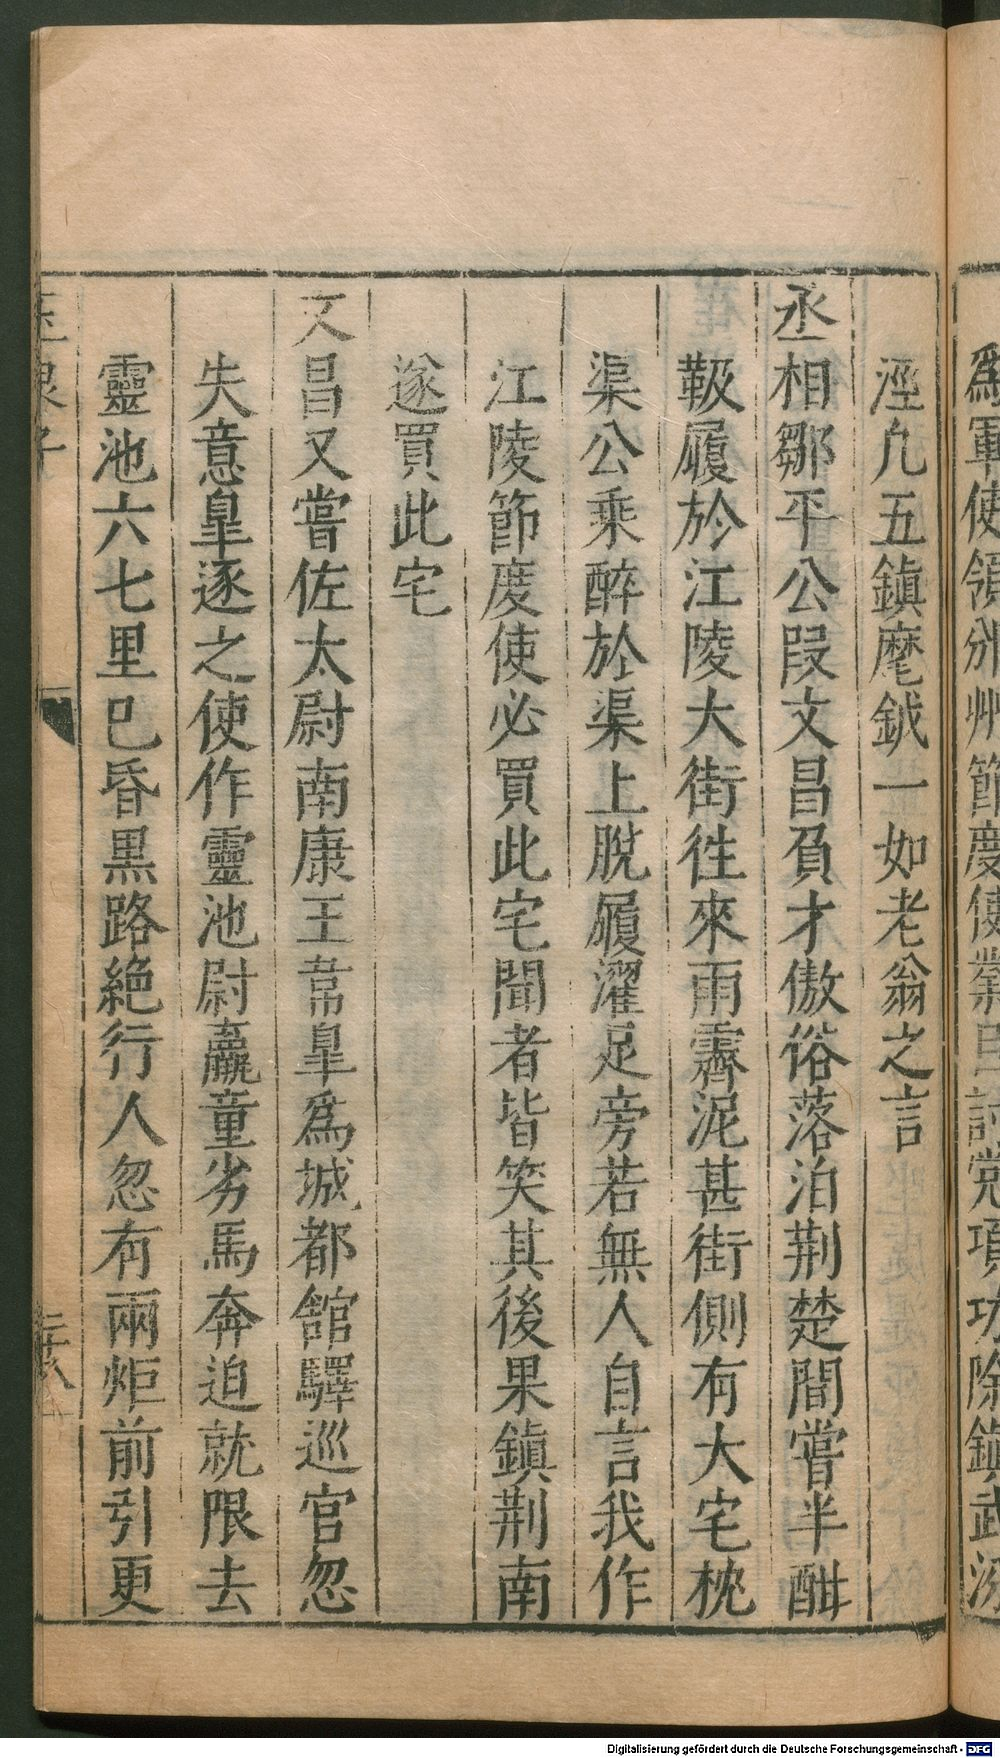 爲軍使領邠州節度使
涇凢五鎮麾鉞一如老翁之言
丞相鄒平公段文昌負才傲俗落泊荆楚間嘗半酣
靸履於江陵大街徃來雨霽泥甚街側有大宅枕
渠公乘醉於渠上脫履濯足旁若無人自言我作
江陵節度使必買此宅聞者皆笑其後果鎮荆南
遂買此宅
文昌又嘗佐太尉南康王韋臯爲城都館驛巡官忽
失意臯逐之使作靈池尉羸童劣馬奔迫就限去
靈池六七里已昏黒路絶行人忽有兩炬前引更
玉泉子 二十八
Digitalisierung gefördert durch die Deutsche Forschungsgemeinschaft - DFG